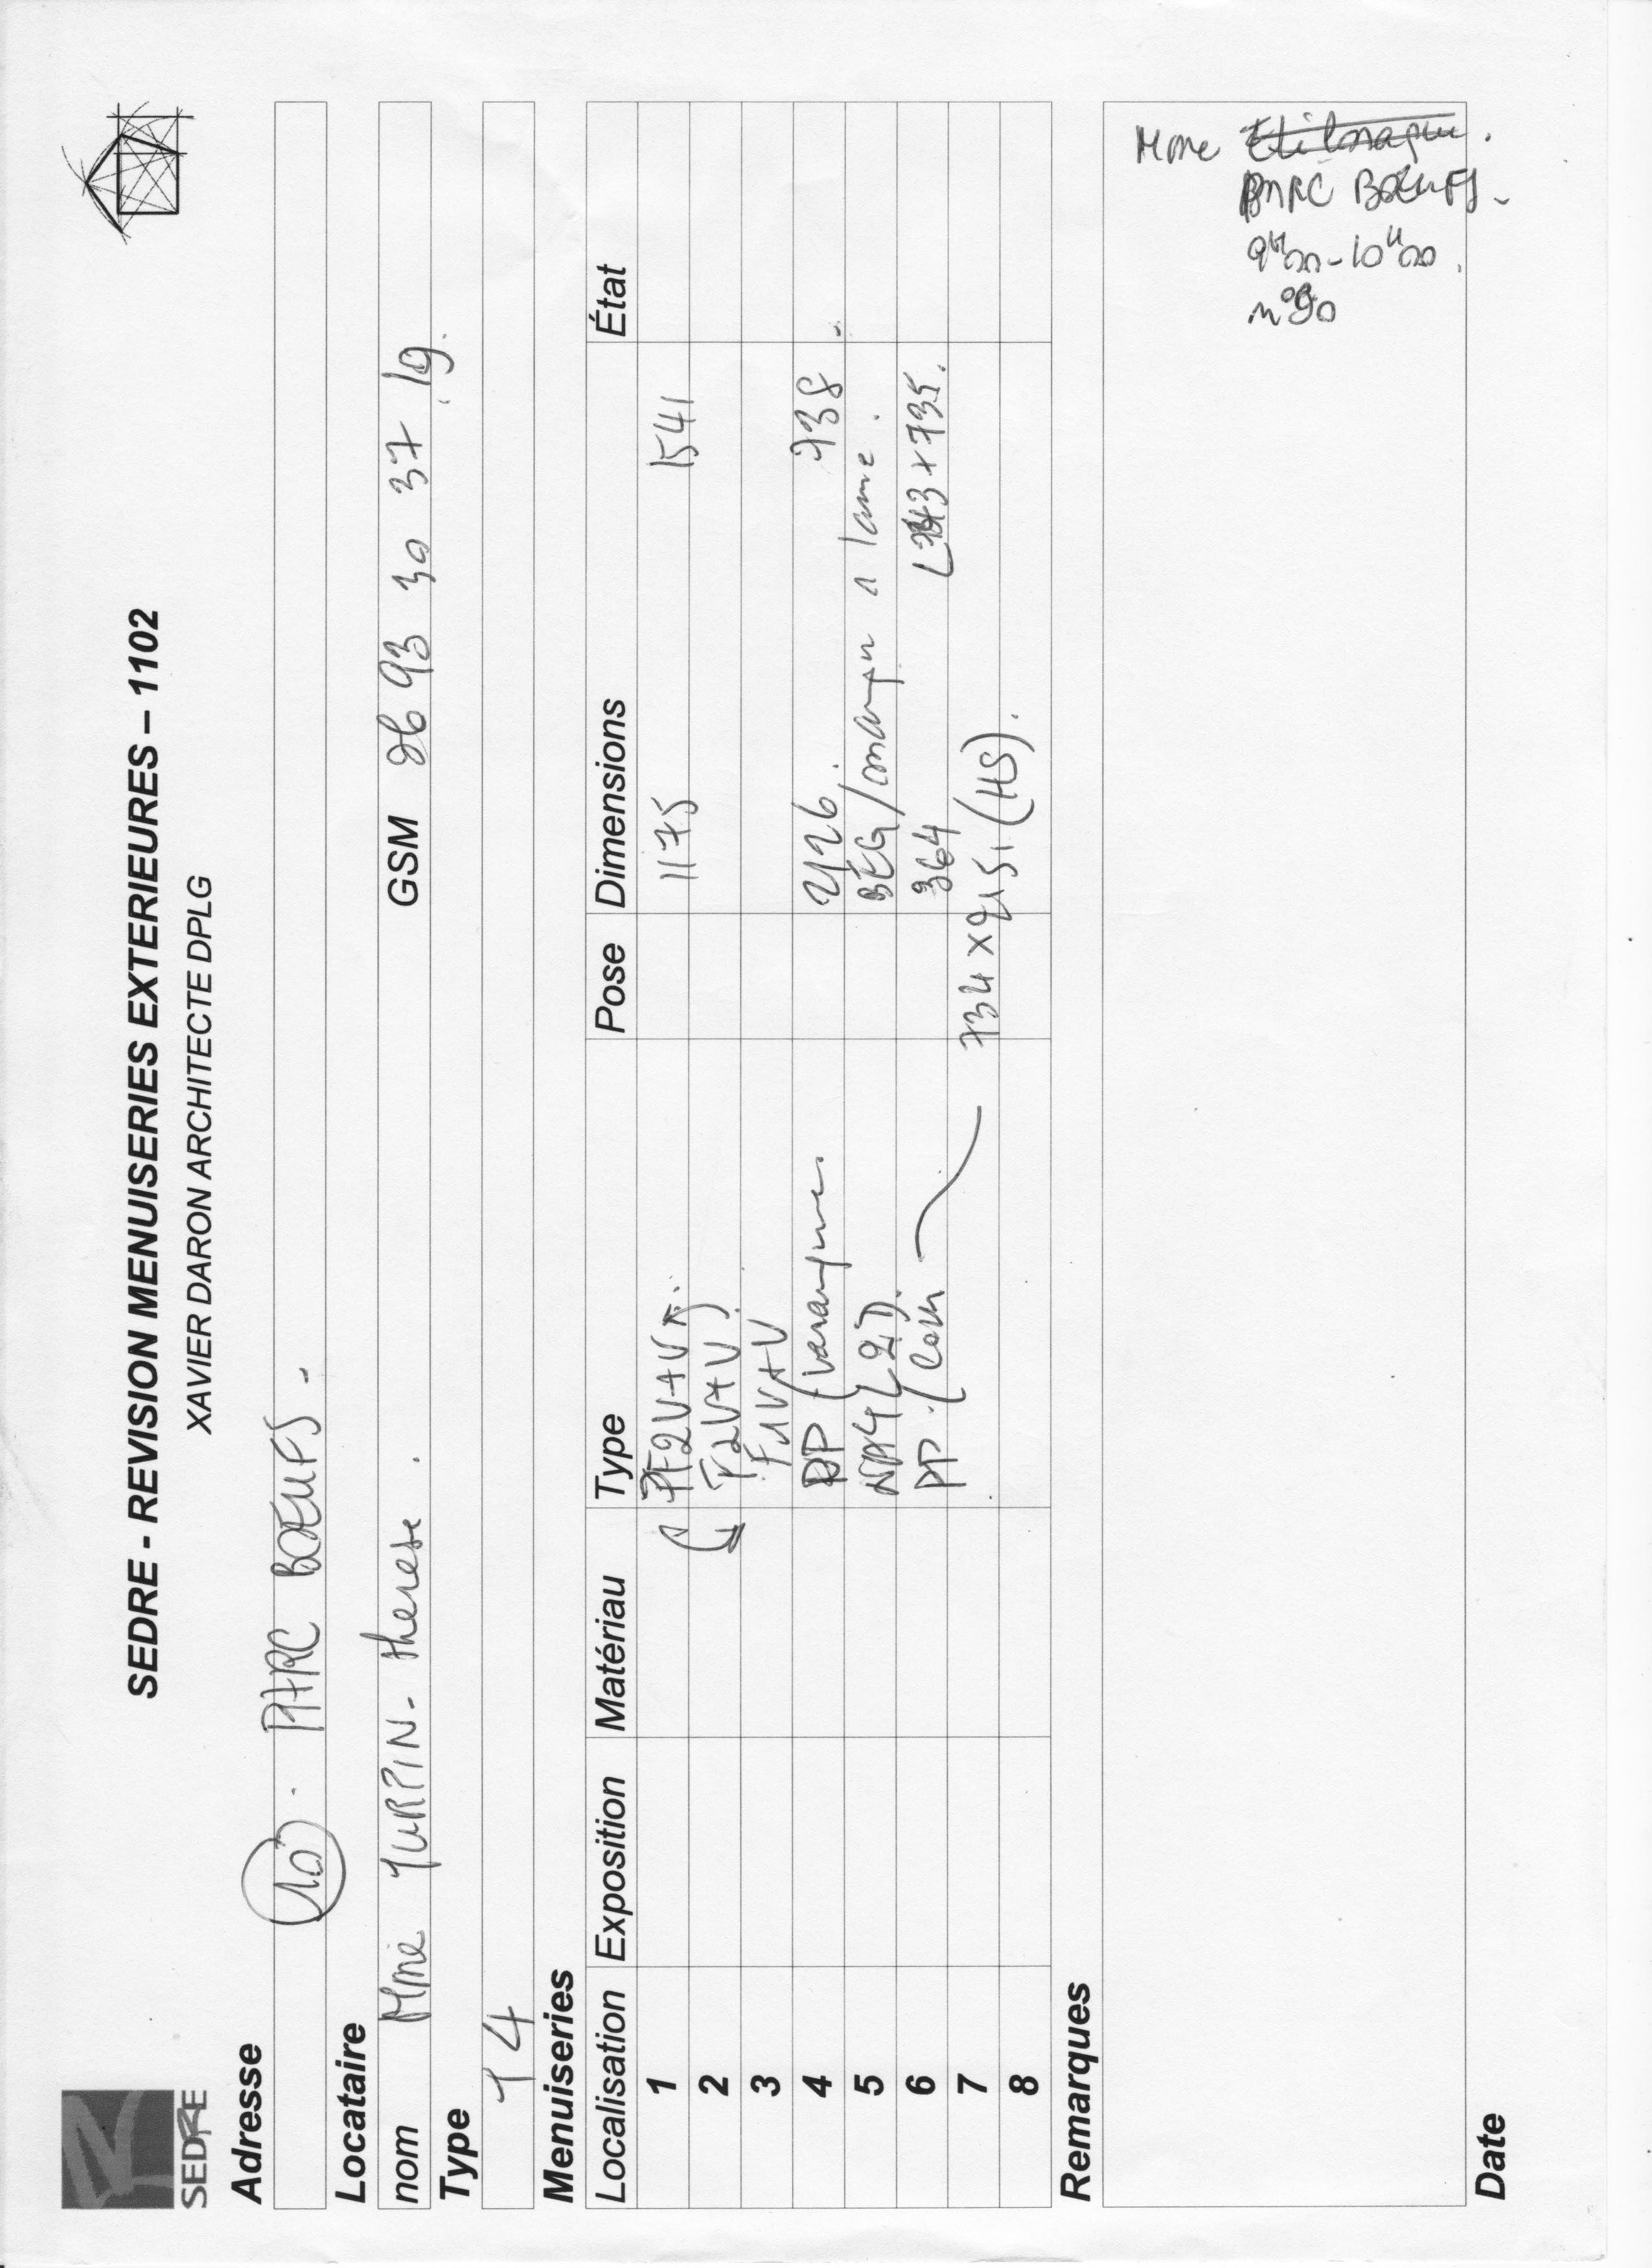 SEDRE
SEDRE - REVISION MENUISERIES EXTERIEURES – 1102
XAVIER DARON ARCHITECTE DPLG
Adresse
10 . PARC BOEUFS -
Locataire
nom Mme TURPIN - therese . GSM 06 93 30 37 19.
Type
T4
Menuiseries
Localisation Exposition Matériau Type Pose Dimensions État
1 PF2V+V 1175 1541
2 F2V+V
3 F1V+V
4 PP (varangue 2126 738
5 NA4 (2D). manque a lame.
6 PP (Cour 364 743 x 735.
7 734 x 2151 (HS).
8
Remarques
Mme
PARC BOEUFS.
9H00 - 10H00.
Date